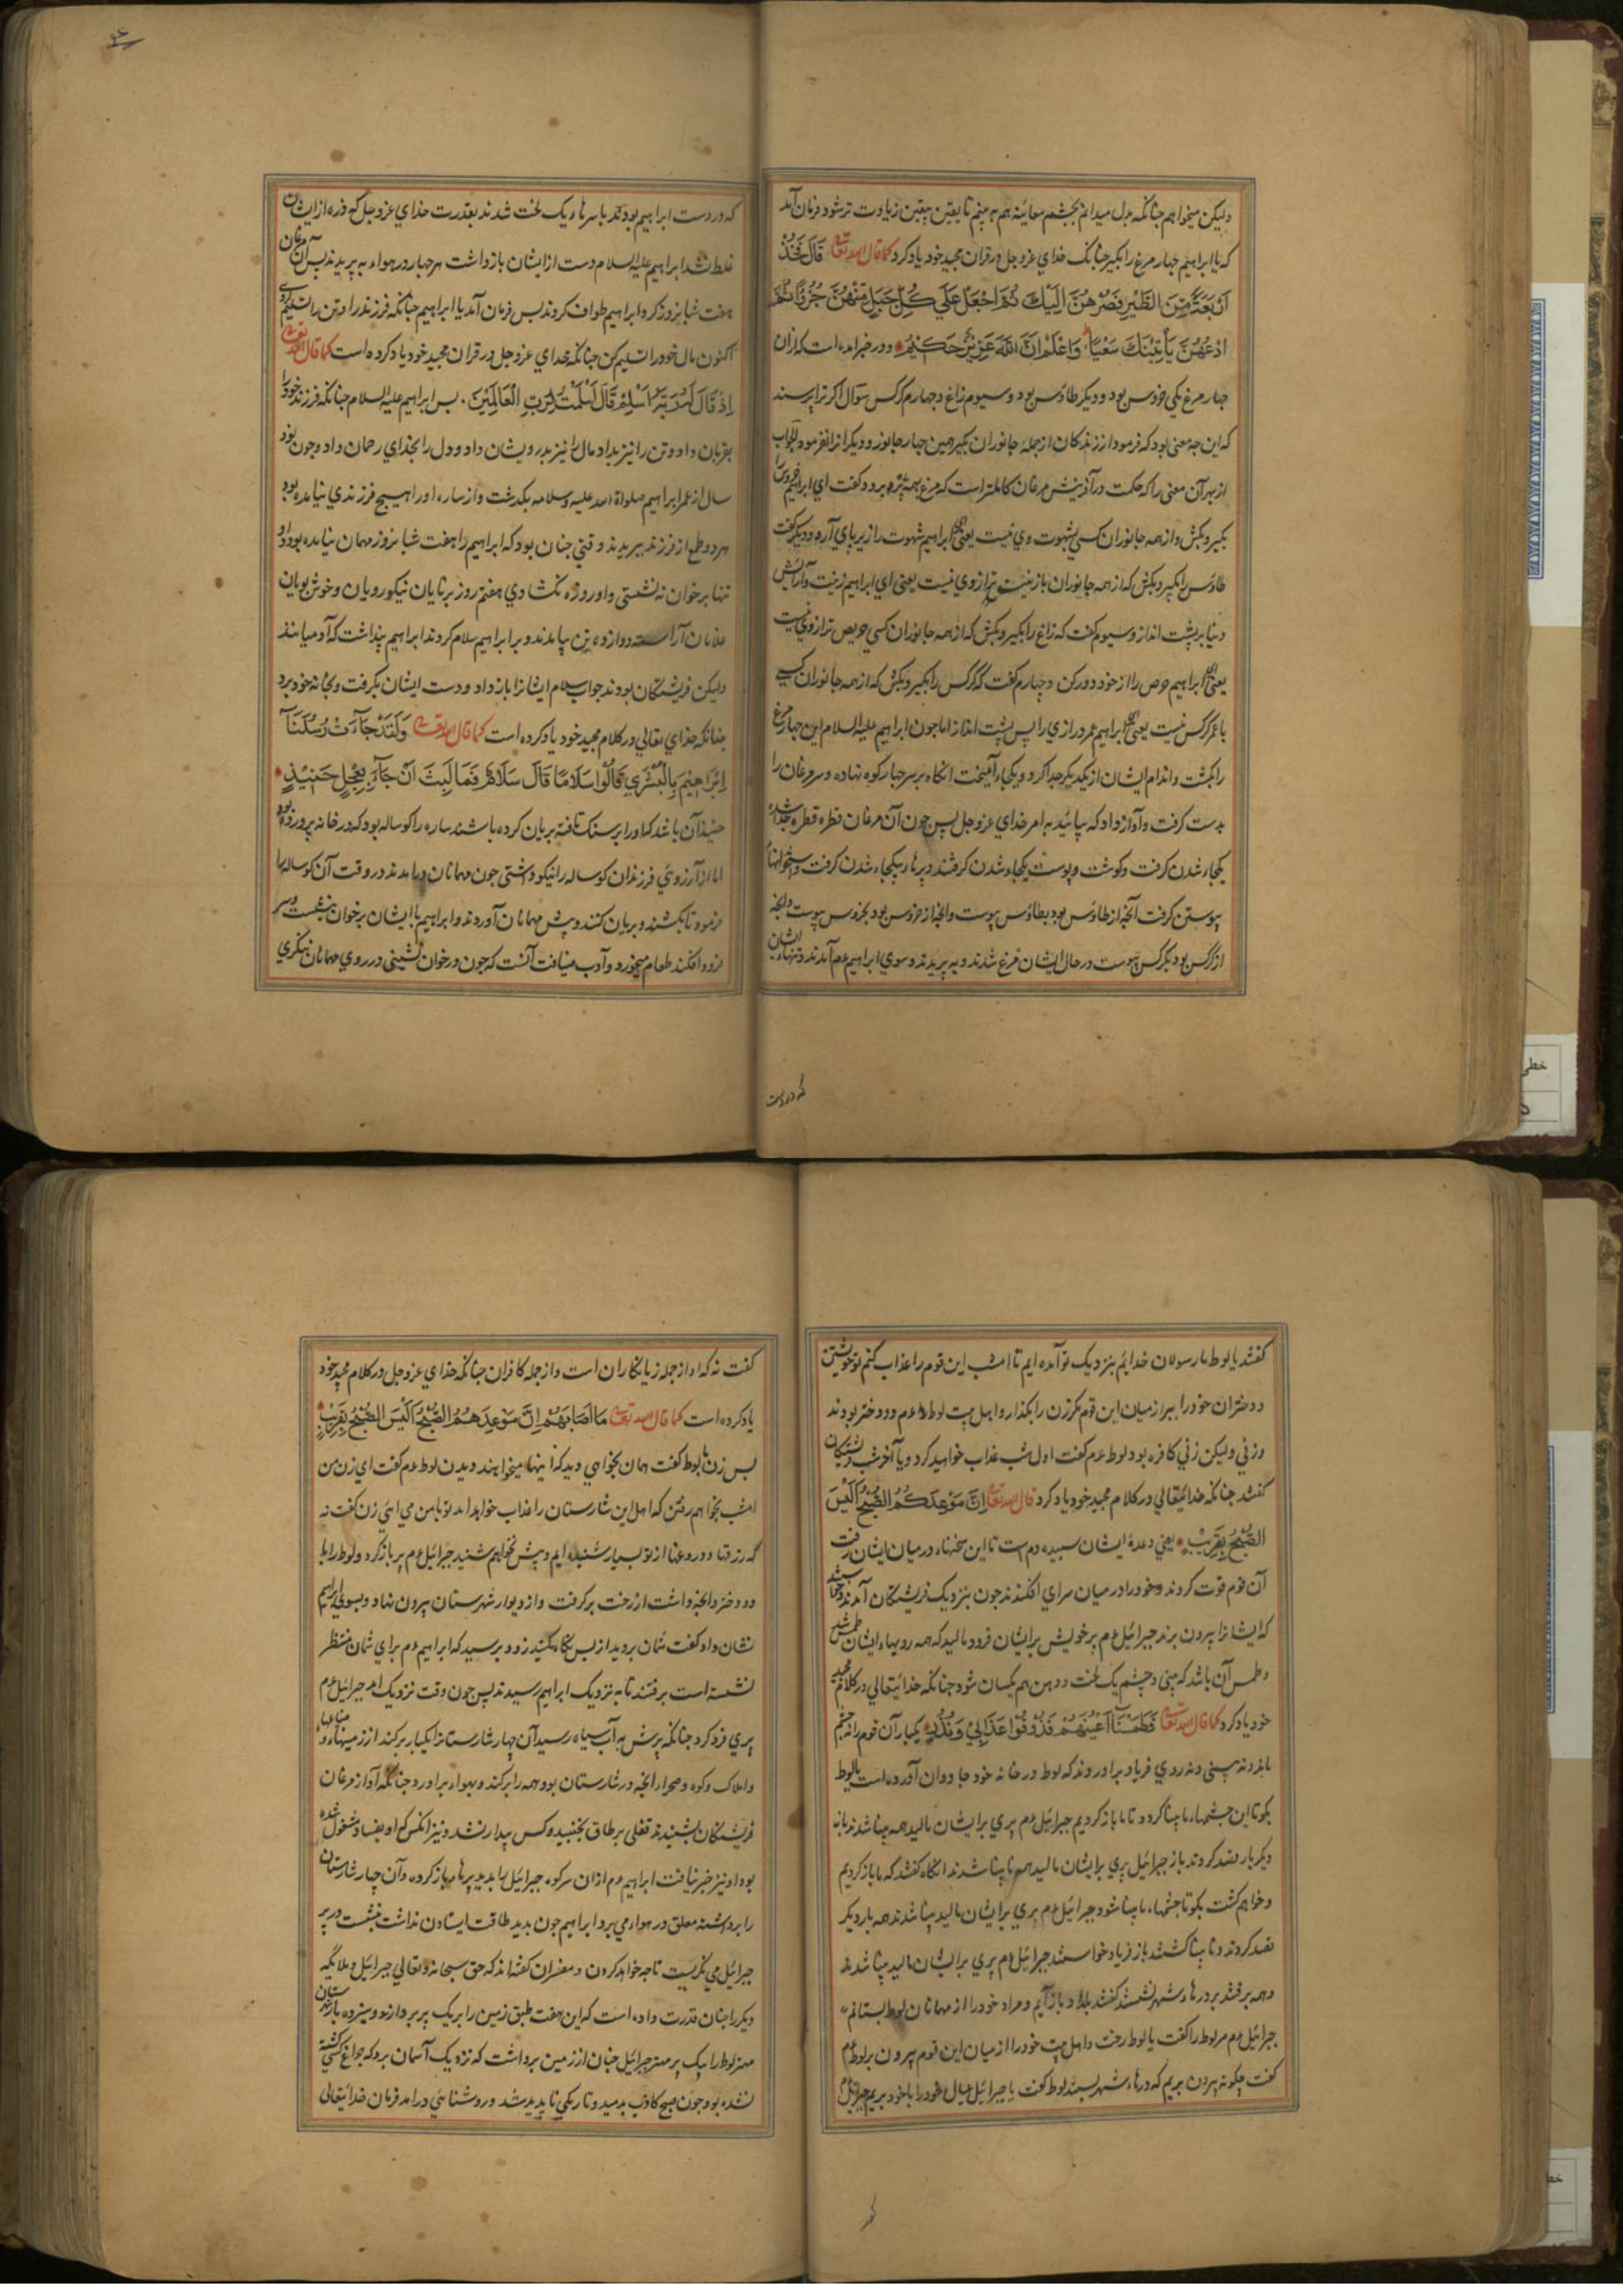 ولیکن میخواهم چنانکه بدل میدانم بچشم معاینه هم به بینم تا یقین بیقین زیاوت تر شود فرمان آمد
که یا ابراهیم چهار مرغ را بگیر چنانک خدای عزوجل در قران مجید خود یاد کرد کما قال الله تعالی قَالَ فَخُذْ
اَرْبَعَةً مِّنَ الطَّیْرِ فَصُرْهُنَّ اِلَیْكَ ثُمَّ اجْعَلْ عَلٰی كُلِّ جَبَلٍ مِّنْهُنَّ جُزْءًا ثُمَّ
ادْعُهُنَّ یَأْتِیْنَكَ سَعْیًا وَاعْلَمْ اَنَّ اللّٰهَ عَزِیْزٌ حَكِیْمٌ و در خبر امده است که ازان
چهار مرغ یکی خروس بود و دیگر طاؤس بود و سیوم زاغ و چهارم کرکس سوال اکر ترا پرسند
که این چه معنی بود که فرمود از زندکان از جمله جانوران بگیر همین چهار جانور و دیگر از انفرمود الجواب
از بهر آن معنی را که حکمت در آفرینش مرغان کاملتر است که مرغ بهمه پره برد و کفت ای ابراهیم خروس را
بگیر و بکش و از همه جانوران کسی بشهوت وی نیست یعنی ای ابراهیم شهوت را زیر پای آر و دیگر کفت
طاؤس را بگیر و بکش که از همه جانوران بازینت تر از وی نیست یعنی ای ابراهیم زینت و آرایش
دنیا بر پشت انداز و سیوم کفت که زاغ را بگیر و بکش که از همه جانوران کسی حریص تر از وی نیست
یعنی ای ابراهیم حرص را از خود دور کن و چهارم کفت که کرکس را بگیر و بکش که از همه جانوران کسی
با عمر کرکس نیست یعنی ای ابراهیم عمر درازی را پس پشت انداز اما چون ابراهیم علیه السلام این چهار مرغ
را بکشت و اندام ایشان از یکدیگر جدا کرد و یکجاء آمیخت انکاه بر سر چهار کوه نهاده و سر مرغان را
بدست کرفت و آواز داد که بیائید به امر خدای عزوجل پس چون آن مرغان قطره قطره جدا شده
یکجاء شدن کرفت و کوشت و پوست یکجاء شدن کرفتند و پرها یکجاء شدن کرفت و استخوانها
پیوستن کرفت آنچه از طاؤس بود بطاؤس پیوست وانچه از خروس بود بخروس پیوست وانچه
از کرکس بود بکرکس پیوست در حال ایشان فرغ شدند و به پریدند و سوی ابراهیم عم آمدند و تنهاء ایشان
که در دست
که در دست ابراهیم بودند با سرهاء یک لخت شدند بقدرت خدای عزوجل که ذره از ایشان
غلط نشد ابراهیم علیه السلام دست از ایشان بازداشت هر چهار در هواء به پریدند پس آن مرغان
هفت شبانروز کرد ابراهیم طواف کردند پس فرمان آمد یا ابراهیم چنانکه فرزند را و تن را تسلیم کردی
اکنون مال خود را تسلیم کن چنانکه خدای عزوجل در قران مجید خود یاد کرده است کما قال الله تعالی
اِذْ قَالَ لَهُ رَبُّهُ اَسْلِمْ قَالَ اَسْلَمْتُ لِرَبِّ الْعَالَمِیْنَ پس ابراهیم علیه السلام چنانکه فرزند خود را
بقربان داد و تن را نیز بداد مال را نیز بدرویشان داد و دل را بخدای رحمان داد و چون نود
سال از عمر ابراهیم صلواة الله علیه وسلامه بگذشت و از ساره او را هیچ فرزندی نیامده بود
هر دو طمع از فرزند ببریدند و قتی چنان بود که ابراهیم را هفت شبانروز مهمان نیامده بود و او
تنها بر خوان ننشستی و او روزه نکشادی هفتم روز برنایان نیکورویان و خوش بویان
غلامان آراسته دوازده تن بیامدند و بر ابراهیم سلام کردند ابراهیم پنداشت که آدمیانند
ولیکن فرشتگان بودند جواب سلام ایشانرا باز داد و دست ایشان بکرفت و بخانه خود برد
چنانکه خدای تعالی در کلام مجید خود یاد کرده است کما قال الله تعالی وَلَقَدْ جَآءَتْ رُسُلُنَآ
اِبْرَاهِیْمَ بِالْبُشْرٰی قَالُوْا سَلَامًا قَالَ سَلَامٌ فَمَا لَبِثَ اَنْ جَآءَ بِعِجْلٍ حَنِیْذٍ
حنیذ آن باشد که او را بر سنک تافته بریان کرده باشند ساره را کوساله بود که در خانه پرورده بود
اما از آرزوئی فرزندان کوساله را نیکو داشتی چون مهمانان درامدند در وقت آن کوساله را
فرمود تا بکشتند و بریان کنند و پیش مهمانان آوردند و ابراهیم با ایشان بر خوان بنشست و سر
فرود افکند طعام میخورد و آدب ضیافت آنست که چون در خوان نشینی در روی مهمانان ننکری
کفتند یا لوط ما رسولان خدائیم بنزدیک تو آمده ایم تا امشب این قوم را عذاب کنم تو خویشتن
و دختران خود را ببر از میان این قوم مگر زن را بگذار و اهل بیت لوط عم دو دختر بودند
و زنی ولیکن زنی کافره بود لوط عم کفت اول شب عذاب خواهید کرد و یا آخر شب فرشتکان
کفتند چنانکه خدائیتعالی در کلام مجید خود یاد کرد قال الله تعالی اِنَّ مَوْعِدَكُمُ الصُّبْحُ اَلَیْسَ
الصُّبْحُ بِقَرِیْبٍ یعنی وعدۀ ایشان سپیده دم است تا این سخنهاء در میان ایشان رفت
آن قوم قوت کردند و خود را در میان سرای افکندند چون بنزدیک فریشتکان آمدند
که ایشانرا بیرون برند جبرائیل عم پر خویش بر ایشان فرود مالید که همه رویهاء ایشان طمس شد
و طمس آن باشد که بینی و چشم یک لخت و دهن هم یکسان شود چنانکه خدائیتعالی در کلام مجید
خود یاد کرد کما قال الله تعالی فَطَمَسْنَا اَعْیُنَهُمْ فَذُوْقُوْا عَذَابِیْ وَنُذُرِ یکبار آن قوم را نه چشم
ماند و نه بینی و نه روی فریاد برآوردند که لوط در خانه خود جادوان آورده است یا لوط
بکو تا این چشمهاء ما بینا کردد تا ما باز کردیم جبرائیل عم پری بر ایشان مالید همه بینا شدند باز
دیگر بار قصد کردند باز جبرائیل پری بر ایشان مالید همه نابینا شدند انکاه کفتند که ما باز کردیم
و خواهم کشت بکو تا چشمهاء ما بینا شود جبرائیل عم پری بر ایشان مالید بینا شدند همه بار دیگر
قصد کردند و نابینا کشتند باز فریاد خواستند جبرائیل عم پری بر ایشان مالید بینا شدند
و همه برفتند بر درهاء شهر نشستند کفتند بامداد باز آیم و مراد خود را از مهمانان لوط بستانم
جبرائیل عم مر لوط را کفت یا لوط رخت و اهل بیت خود را از میان این قوم بیرون بر لوط عم
کفت چکونه بیرون بریم که درهاء شهر بستند لوط کفت یا جبرائیل عیال خود را با خود بریم جبرائیل عم
کفت نه که او از جمله زیانکاران است و از جمله کافران چنانکه خدای عزوجل در کلام مجید خود
یاد کرده است کما قال الله تعالی مَا اَصَابَهُمْ اِنَّ مَوْعِدَهُمُ الصُّبْحُ اَلَیْسَ الصُّبْحُ بِقَرِیْبٍ
پس زن با لوط کفت همان بخواهی دید که اینها میخوابند دیدن لوط عم کفت ای زن من
امشب بخواهم رفتن که اهل این شارستان را عذاب خواهد امد تو با من می ائی زن کفت نه
که زرقها و دروغها از تو بسیار شنیده ایم و بیش نخواهم شنید جبرائیل عم پر باز کرد و لوط را با
دو دختر وانچه داشت از رخت برکرفت و از دیوار شهرستان بیرون نهاد و بسوی ابراهیم
نشان داد کفت شمان بروید از پس نکاه مکنید زود برسید که ابراهیم عم برای شمان منتظر
نشسته است برفتند تا به نزدیک ابراهیم رسیدند پس چون وقت نزدیک امد جبرائیل عم
پری فرو کرد چنانکه پرش به آب سیاه رسید آن چهار شارستانرا یکبار برکند از زمینهاء و
واملاک و کوه و صحرا وانچه در شارستان بود همه را برکند و بهواء برآورد چنانکه آواز مرغان
فریشتکان بشنیدند قفلی بر طاق نجنبیده کس بیدار نشد و نیز انکس که او بفساد مشغول شده
بود او نیز خبر نیافت ابراهیم عم از ان سر کوه جبرائیل را بدید پرها باز کرده و آن چهار شارستان
را برداشته معلق در هواء می برد ابراهیم چون بدید طاقت ایستادن نداشت بنشست و در پر
جبرائیل می نکریست تا چه خواهد کردن و مفسران کفته اند که حق سبحانه و تعالی جبرائیل و ملائکه
دیگر را چنان قدرت داده است که این هفت طبق زمین را بر یک پر بردارند و سیزده بار
مهتر لوط را بیک پر مهتر جبرائیل چنان از زمین برداشت که نزدیک آسمان برد که چراغ کسی کشته
نشده بود چون صبح کاذب بدمید و تاریکی ناپدید شد و روشنائی درامد فرمان خدائیتعالی